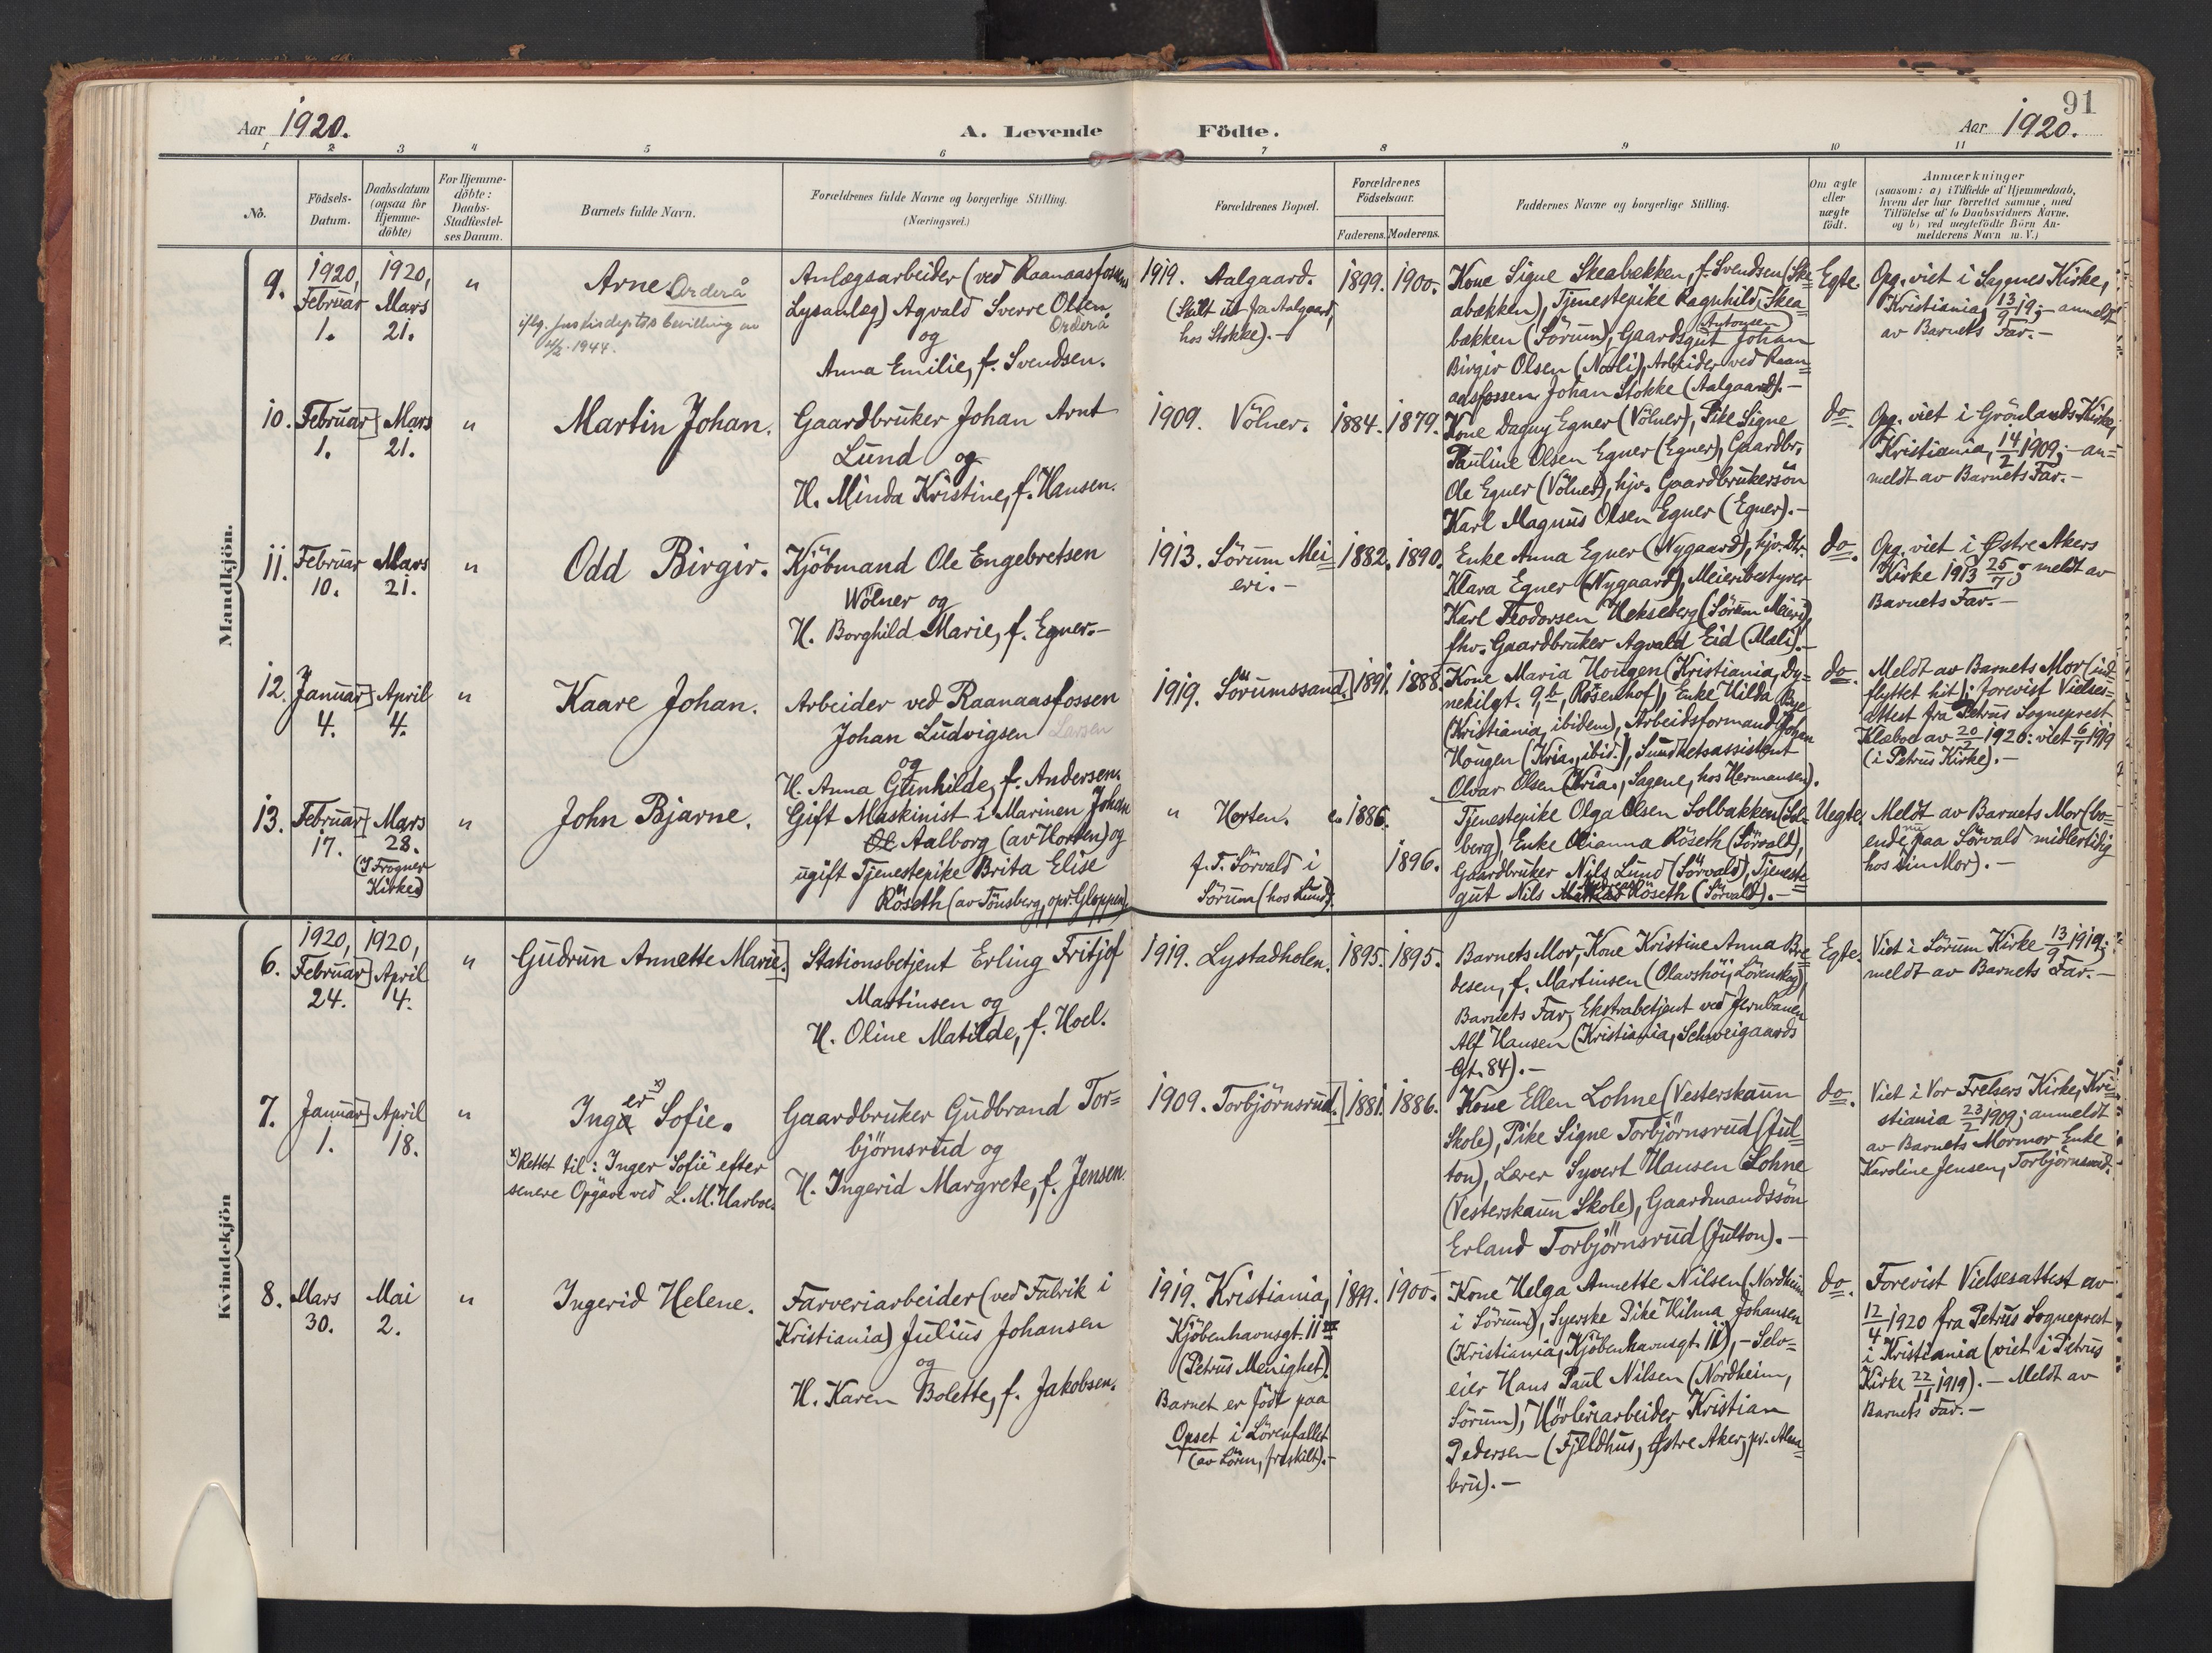 91
Aar 1920.
A. Levende Födte.
Aar 1920.
1 2 3 4 5 6 7 8 9 10 11
No.
Födsels-
Datum.
Daabsdatum
(ogsaa for
Hjemme-
döbte)
For Hjemme-
döbte:
Daabs-
Stadfæstel-
ses Datum.
Barnets fulde Navn.
Forældrenes fulde Navne og borgerlige Stilling.
(Næringsvei.)
Forældrenes Bopæl.
Forældrenes
Födselsaar.
Faderens. Moderens.
Faddernes Navne og borgerlige Stilling.
Om ægte
eller
uægte
födt.
Anmærkninger
(saasom: a) i Tilfælde af Hjemmedaab,
hvem der har forrettet samme, med
Tilföielse af to Daabsvidners Navne,
og b) ved uegtefödte Börn An-
melderens Navn m. V.)
Mandkjön.
9.
1920,
Februar
1.
1920,
Mars
21.
"
Arne Orderå
iflg. Justisdeptets bevilling av
1944.
Anlægsarbeider (ved Raanaasfossens
Lysanlæg) Agvald Sverre Olsen
Orderå
og
Anna Emilie, f. Svendsen.
1919. Aalgaard.
(Skilt ut fra Aalgaard,
hos Stokke).-
1899. 1900.
Kone Signe Skeabækken, f. Svendsen (Ske-
abækken), Tjenestepike Ragnhild Skea-
bækken (Sörum), Gaardsgut Johan
Antonsen
Birger Olsen (Nordli), Arbeider ved Raan-
aasfossen Johan Stokke (Aalgaard).-
Egte.
Opg. viet i Sagenes Kirke,
Kristiania, 13/9 19;- anmeldt
av Barnets Far.-
10.
Februar
1.
Mars
21.
"
Martin Johan.
Gaardbruker Johan Arnt
Lund og
H. Minda Kristine, f. Hansen.
1909. Völner.
1884. 1879.
Kone Dagny Egner (Völner), Pike Signe
Pauline Olsen Egner (Egner), Gaardbr.
Ole Egner (Völner), hjv. Gaardbrukersön
Karl Magnus Olsen Egner (Egner).-
do.
Opg. viet i Grönlands Kirke,
Kristiania, 14/2 1909;- an-
meldt av Barnets Far.-
11.
Februar
10.
Mars
21.
"
Odd Birgir.
Kjöbmand Ole Engebretsen
Wölner og
H. Borghild Marie, f. Egner.-
1913. Sörum Mei-
eri.-
1882. 1890.
Enke Anna Egner (Nygaard), hjv. Dtr.
Klara Egner (Nygaard), Meieribestyrer
Karl Teodorsen Hekseberg (Sörum Meieri),
fhv. Gaardbruker Agvald Eid (Mæli).-
do.
Opg. viet i Østre Akers
Kirke 1913 25/7; meldt av
Barnets Far.-
12.
Januar
4.
April
4.
"
Kaare Johan.
Arbeider ved Raanaasfossen
Johan Ludvigsen Larsen
og
H. Anna Gunhilde, f. Andersen.
1919. Sörumssand.
1891. 1888.
Kone Maria Hougen (Kristiania, Dy-
nekilgt. 9, b, Rosenhof), Enke Hilda Bye
(Kristiania, ibidem), Arbeidsformand Johan
Hougen (Kria., ibid.), Sundhetsassistent
Olvar Olsen (Kria., Sagene, hos Hermansen).
do.
Meldt av Barnets Mor (ind-
flyttet hit); forevist Vielses-
attest fra Petrus Sogneprest
Klæboe av 20/2 1920: viet 6/7 1919
(i Petrus Kirke).-
13.
Februar
17.
Mars
28.
(I Frogner
Kirke)
"
John Bjarne.
Gift Maskinist i Marinen Johan
Aalborg (av Horten) og
ugift Tjenestepike Brita Elise
Röseth (av Tönsberg, opr. Gloppen).
" Horten.
f. T. Sörvald i
Sörum (hos Lund).
c. 1886.
1896.
Tjenestepike Olga Olsen Solbakken (Sol-
berg), Enke Olianna Röseth (Sörvald),
Gaardbruker Nils Lund (Sörvald), Tjeneste-
gut Nils Röseth (Sörvald).-
Uegte.
Meldt av Barnets Mor (bo-
ende nu paa Sörvald midlertidig
hos sin Mor).-
Kvindekjön
6.
1920,
Februar
24.
1920,
April
4.
"
Gudrun Annette Marie.
Stationsbetjent Erling Fritjof
Martinsen og
H. Oline Matilde, f. Hoel.
1919. Lystadholen.
1895. 1895.
Barnets Mor, Kone Kristine Anna Bre-
desen, f. Martinsen (Olavshöi, Lörenskog),
Barnets Far, Ekstrabetjent ved Jernbanen
Alf Hansen (Kristiania, Schweigaards
Gt. 84).-
Egte.
Viet i Sörum Kirke 13/9 1919;
meldt av Barnets Far.-
7.
Januar
1.
April
18.
"
Inga er x) Sofie.
x) Rettet til: Inger Sofie efter
senere Opgave ved L. M. Harboe.
Gaardbruker Gudbrand Tor-
björnsrud og
H. Ingerid Margrete, f. Jensen.
1909. Torbjörnsrud.
1881. 1886.
Kone Ellen Lohne (Vesterskaun
Skole), Pike Signe Torbjörnsrud (Jul-
ton), Lærer Syvert Hansen Lohne
(Vesterskaun Skole), Gaardmandssön
Erland Torbjörnsrud (Julton).-
do.
Viet i Vor Frelsers Kirke, Kri-
stiania 23/2 1909; anmeldt
av Barnets Mormor Enke
Karoline Jensen, Torbjörnsrud.
8.
Mars
30.
Mai
2.
"
Ingerid Helene.
Farveriarbeider (ved Fabrik i
Kristiania) Julius Johansen
og
H. Karen Bolette, f. Jakobsen.
1919. Kristiania,
Kjöbenhavnsgt. 11 III
(Petrus Menighet).
Barnet er födt paa
Opset i Lörenfallet
(av Lören, fraskilt).-
1899. 1900.
Kone Helga Annette Nilsen (Nordheim
i Sörum), Syerske Pike Hilma Johansen
(Kristiania, Kjöbenhavnsgt. 11),- Selv-
eier Hans Paul Nilsen (Nordheim,
Sörum), Hövleriarbeider Kristian
Pedersen (Fjeldhus, Østre Aker, pr. Alna-
bru).-
do.
Forevist Vielsesattest av
12/4 1920 fra Petrus Sogneprest
i Kristiania (viet i Petrus
Kirke 22/11 1919).- Meldt av
Barnets Far.-